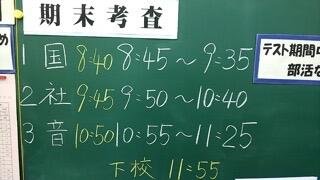 期末考査
め
テスト期間中
部活な
1 国 8:40 8:45～9:35
2 社 9:45 9:50～10:40
3 音 10:50 10:55～11:25
下校 11:55